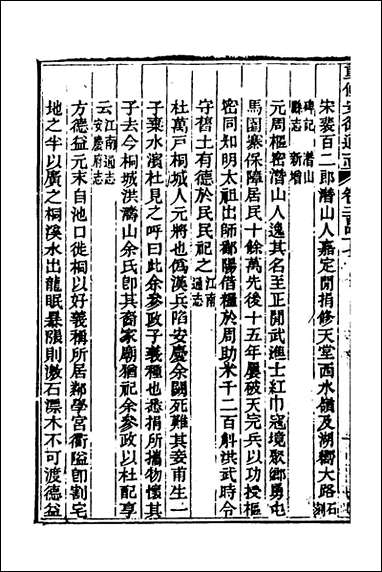 重修安徽通志 卷二百四十七
宋裴百二郎潛山人嘉定閒捐修天堂西水嶺及湖嚮大路石刻
碑記 潛山縣志 新增
元周樞密潛山人逸其名至正閒武漁士紅巾寇境聚鄉勇屯
馬園寨保障居民十餘萬先後十五年屢破天完兵以功授樞
密同知明太祖出師鄱陽借糧於周助米千二百斛洪武時令
守舊土有德於民民祀之 江南通志
杜萬戸桐城人元將也僞漢兵陷安慶余闕死難其妾甫生一
子棄水濱杜見之呼曰此余參政子義種也悉捐所攜物懷其
子去今桐城洪濤山余氏卽其裔家廟猶祀余參政以杜配享
云 江南通志 安慶府志
方德益元末自池口徙桐以好義稱所居鄰學宮衢隘卽割宅
地之半以廣之桐溪水出龍眠暴漲則漱石漂木不可渡德益